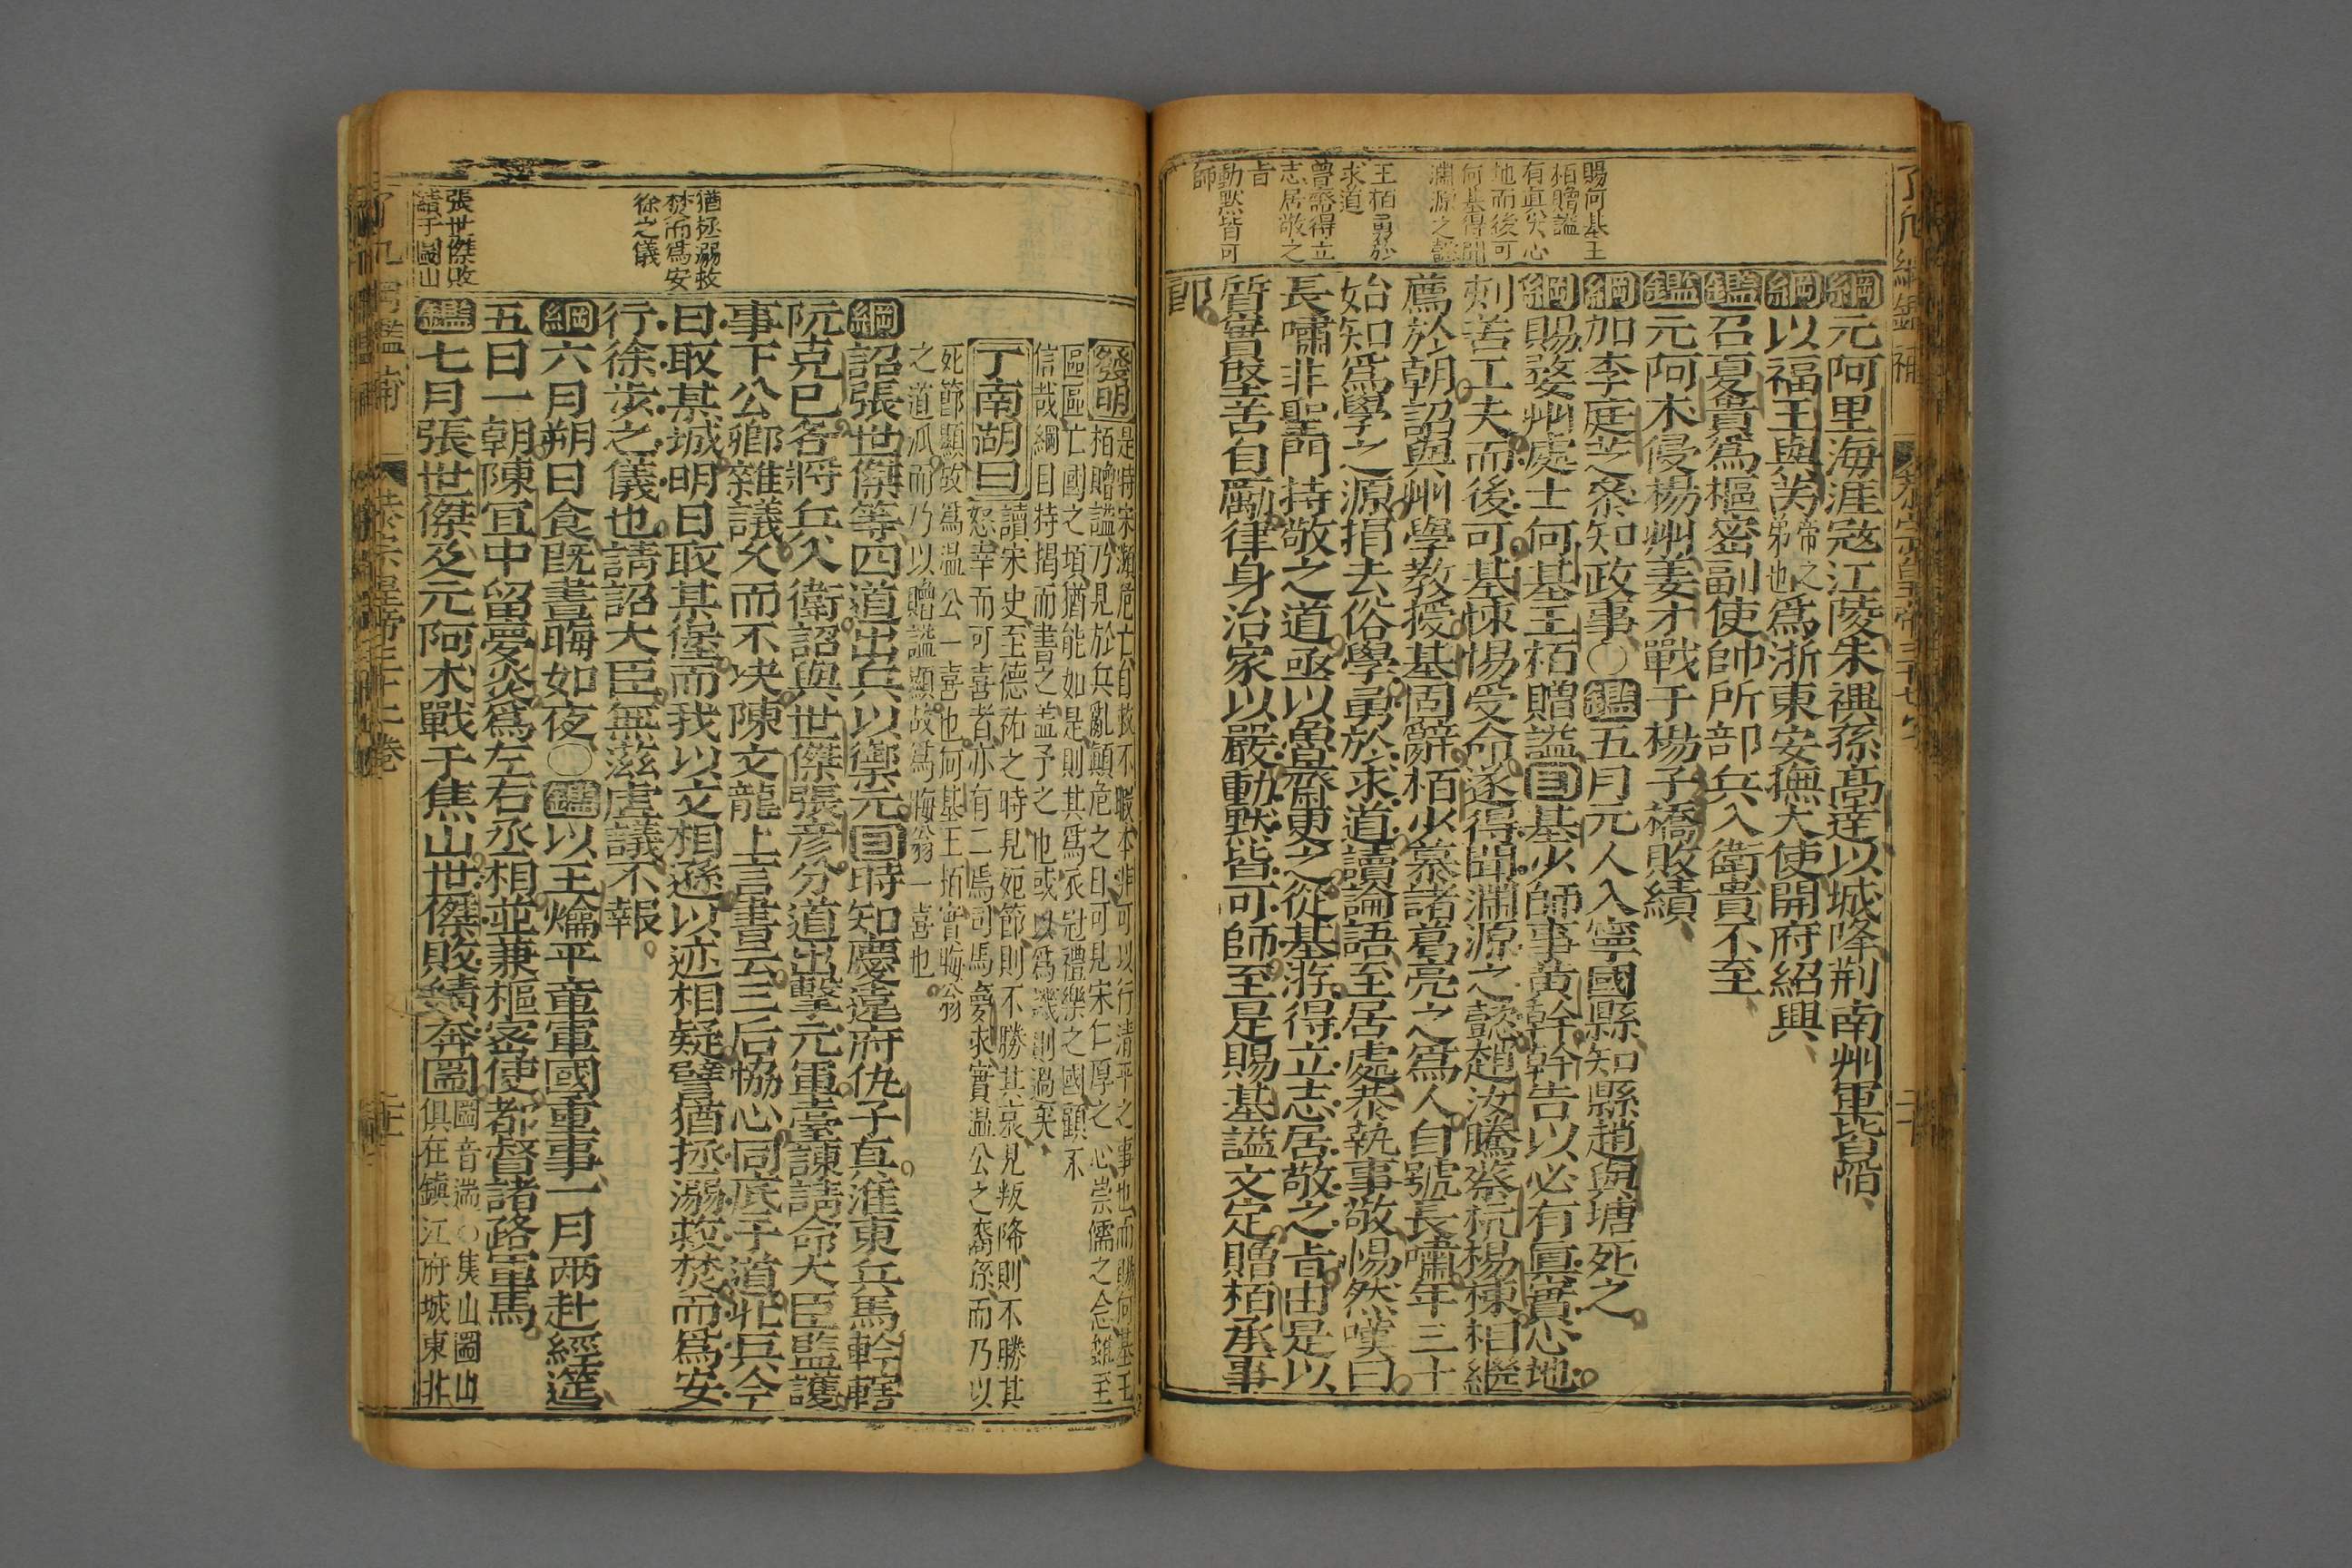 賜何基王
栢贈謚
有眞實心
地而後可
何基得聞
淵源之懿
王栢勇於
求道
曾齋得立
志居敬之
旨
動默皆可
師
綱元阿里海涯寇江陵朱禩孫高達以城降荆南州軍皆陷
綱以福王與芮帝之弟也爲浙東安撫大使開府紹興
鑑召夏貴爲樞密副使帥所部兵入衛貴不至
鑑元阿朮侵楊州姜才戰于楊子橋敗績
綱加李庭芝叅知政事〇鑑五月元人入寧國縣知縣趙與瑭死之
綱賜婺州處士何基王栢贈謚目基少師事黄幹幹告以必有眞實心地
刻苦工夫而後可基悚惕受命遂得聞淵源之懿趙汝騰蔡杭楊棟相繼
薦於朝詔與州學教授基固辭栢少慕諸葛亮之爲人自號長嘯年三十
始知爲學之源捐去俗學勇於求道讀論語至居處恭執事敬惕然嘆曰
長嘯非聖門持敬之道亟以魯齋更之從基游得立志居敬之旨由是以
質實堅苦自勵律身治家以嚴動默皆可師至是賜基謚文定贈栢承事
郎
發明是時宋瀕危亡自救不暇本非可以行清平之事也而賜何基王
栢贈謚乃見於兵亂顛危之日可見宋仁厚之心崇儒之念雖至
區區亡國之頃猶能如是則其爲衣冠禮樂之國顧不
信哉綱目特揭而書之盖予之也或以爲譏則過矣
丁南湖曰讀宋史至德祐之時見死節則不勝其哀見叛降則不勝其
怒幸而可喜者亦有二焉司馬夢求實温公之裔孫而乃以
死節顯故爲温公一喜也何基王栢實晦翁
之道派而乃以贈謚顯故爲晦翁一喜也
猶拯溺救
焚而爲安
徐之儀
綱詔張世傑等四道出兵以禦元目時知慶遠府仇子真淮東兵馬鈐轄
阮克已各將兵入衛詔與世傑張彦分道出擊元軍臺諫請命大臣監護
事下公卿雜議久而不决陳文龍上言書云三后協心同底于道北兵今
日取某城明日取某堡而我以文相遜以迹相疑譬猶拯溺救焚而爲安
行徐步之儀也請詔大臣無滋虚議不報
綱六月朔日食既晝晦如夜〇鑑以王爚平章軍國重事一月兩赴經筵
五日一朝陳宜中留夢炎爲左右丞相並兼樞密使都督諸路軍馬
張世傑敗
績于圌山
鑑七月張世傑及元阿朮戰于焦山世傑敗績奔圌圌音湍〇焦山圌山
俱在鎮江府城東北